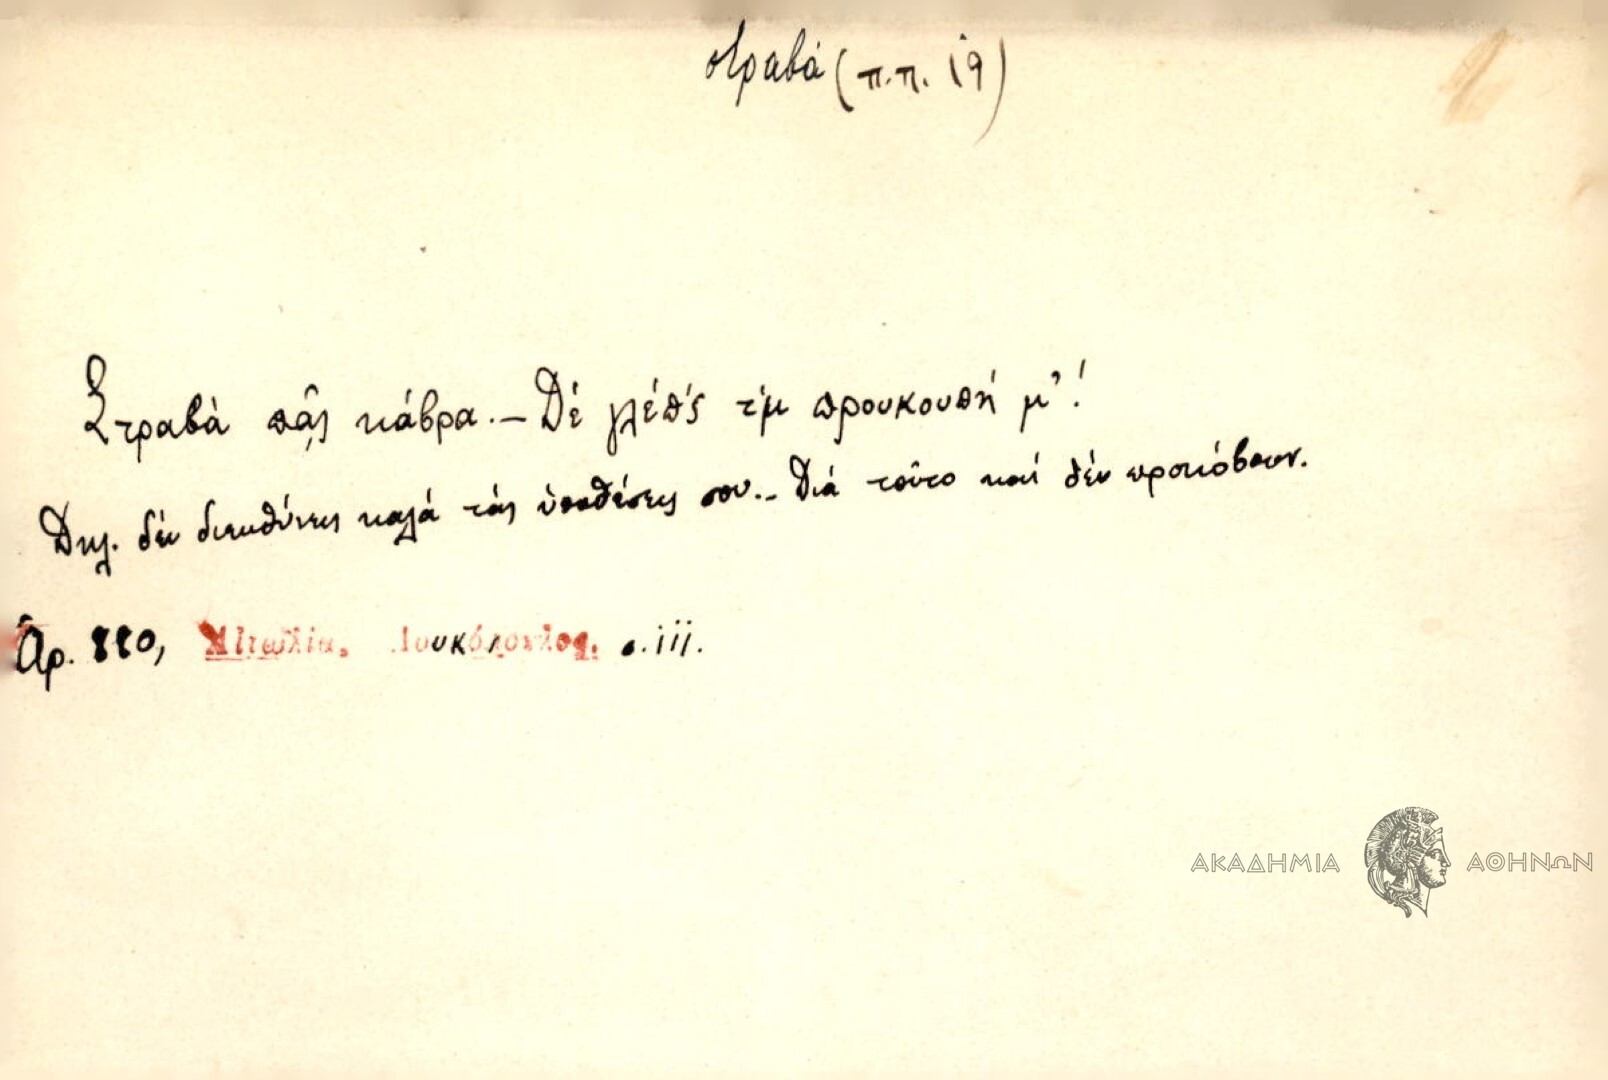 στραβά (π.π. 19)
Στραβὰ πᾷς κάβρα. — Δὲ γλέπ'ς τ'μ προυκουπή μ'!
Δηλ. δὲν διευθύνεις καλά τὰς ὑποθέσεις σου. — Διὰ τοῦτο καὶ δὲν προκόβουν.
Ἀρ. 880, Αἰτωλία, Λουκόπουλος, σ. 111.
ΑΚΑΔΗΜΙΑ ΑΘΗΝΩΝ